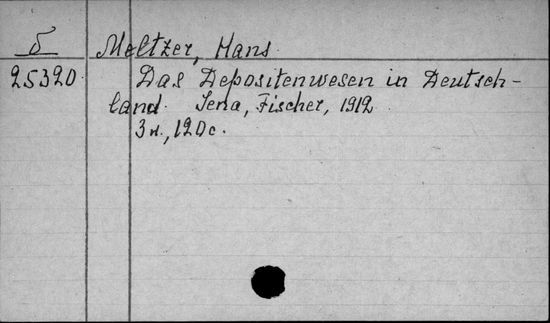 δ Meltzer, Hans
25320. Das Depositenwesen in Deutsch-
land. Jena, Fischer, 1912.
3н., 120с.